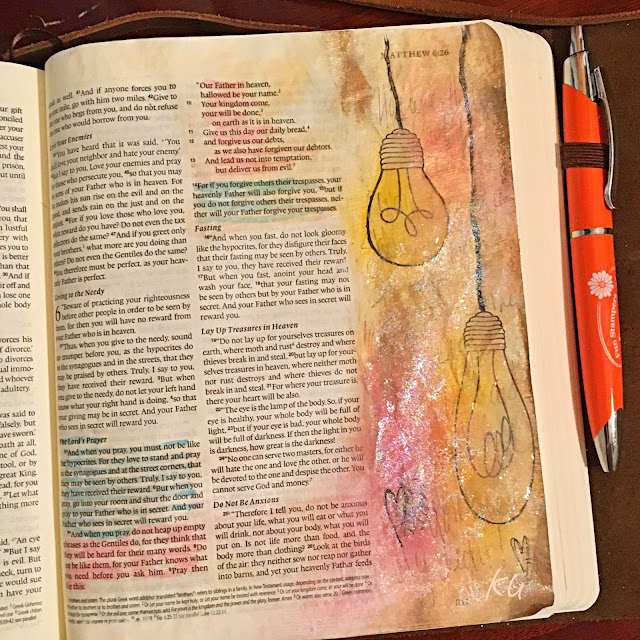 gift
onciled
er your
accuser
est your
and the
prison.
out until
You shall
you that
h lustful
ery with
es you to
is better
han that
And if
it off and
lose one
hole body
orces his
f divorce.'
o divorces
ual immo-
d whoever
adultery.
was said to
falsely, but
ave sworn.'
oath at all,
ne of God,
tool, or by
great King.
ead, for you
Let what
thing more
said, 'An eye
But I say
is evil. But
eek, turn to
e would sue
have your
as well. 41And if anyone forces you to
go one mile, go with him two miles. 42Give to
the one who begs from you, and do not refuse
the one who would borrow from you.
Love Your Enemies
"You have heard that it was said, 'You
shall love your neighbor and hate your enemy.'
But I say to you, Love your enemies and pray
for those who persecute you, 45so that you may
be sons of your Father who is in heaven. For
he makes his sun rise on the evil and on the
good, and sends rain on the just and on the
unjust. 46For if you love those who love you,
what reward do you have? Do not even the tax
collectors do the same? 47And if you greet only
your brothers, what more are you doing than
others? Do not even the Gentiles do the same?
You therefore must be perfect, as your heav-
enly Father is perfect.
Giving to the Needy
6 "Beware of practicing your righteousness
before other people in order to be seen by
them, for then you will have no reward from
your Father who is in heaven.
2"Thus, when you give to the needy, sound
no trumpet before you, as the hypocrites do
in the synagogues and in the streets, that they
may be praised by others. Truly, I say to you,
they have received their reward. 3But when
you give to the needy, do not let your left hand
know what your right hand is doing, 4so that
your giving may be in secret. And your Father
who sees in secret will reward you.
The Lord's Prayer
5"And when you pray, you must not be like
the hypocrites. For they love to stand and pray
in the synagogues and at the street corners, that
they may be seen by others. Truly, I say to you,
they have received their reward. 6But when you
pray, go into your room and shut the door and
pray to your Father who is in secret. And your
Father who sees in secret will reward you.
7"And when you pray, do not heap up empty
phrases as the Gentiles do, for they think that
they will be heard for their many words. 8Do
not be like them, for your Father knows what
you need before you ask him. 9Pray then
like this:
MATTHEW 6:26
"Our Father in heaven,
hallowed be your name.
10 Your kingdom come,
your will be done,
on earth as it is in heaven.
11 Give us this day our daily bread,
12 and forgive us our debts,
as we also have forgiven our debtors.
13 And lead us not into temptation,
but deliver us from evil.
14For if you forgive others their trespasses, your
heavenly Father will also forgive you, 15but if
you do not forgive others their trespasses, nei-
ther will your Father forgive your trespasses.
Fasting
16"And when you fast, do not look gloomy
like the hypocrites, for they disfigure their faces
that their fasting may be seen by others. Truly,
I say to you, they have received their reward.
17But when you fast, anoint your head and
wash your face, 18that your fasting may not
be seen by others but by your Father who is in
secret. And your Father who sees in secret will
reward you.
Lay Up Treasures in Heaven
19"Do not lay up for yourselves treasures on
earth, where moth and rust destroy and where
thieves break in and steal, 20but lay up for your-
selves treasures in heaven, where neither moth
nor rust destroys and where thieves do not
break in and steal. 21For where your treasure is,
there your heart will be also.
22"The eye is the lamp of the body. So, if your
eye is healthy, your whole body will be full of
light, 23but if your eye is bad, your whole body
will be full of darkness. If then the light in you
is darkness, how great is the darkness!
24"No one can serve two masters, for either he
will hate the one and love the other, or he will
be devoted to the one and despise the other. You
cannot serve God and money.
Do Not Be Anxious
25"Therefore I tell you, do not be anxious
about your life, what you will eat or what you
will drink, nor about your body, what you will
put on. Is not life more than food, and the
body more than clothing? 26Look at the birds
of the air: they neither sow nor reap nor gather
into barns, and yet your heavenly Father feeds
KG
Fun Stampers